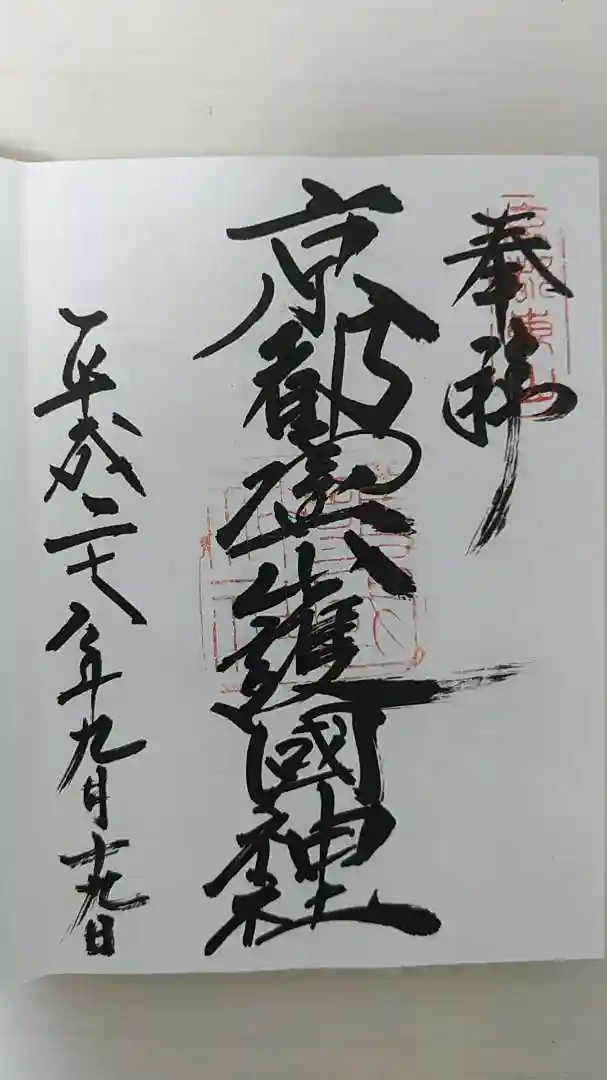 奉拝
京都東山
京都靈山護國神社
平成二十八年九月十九日